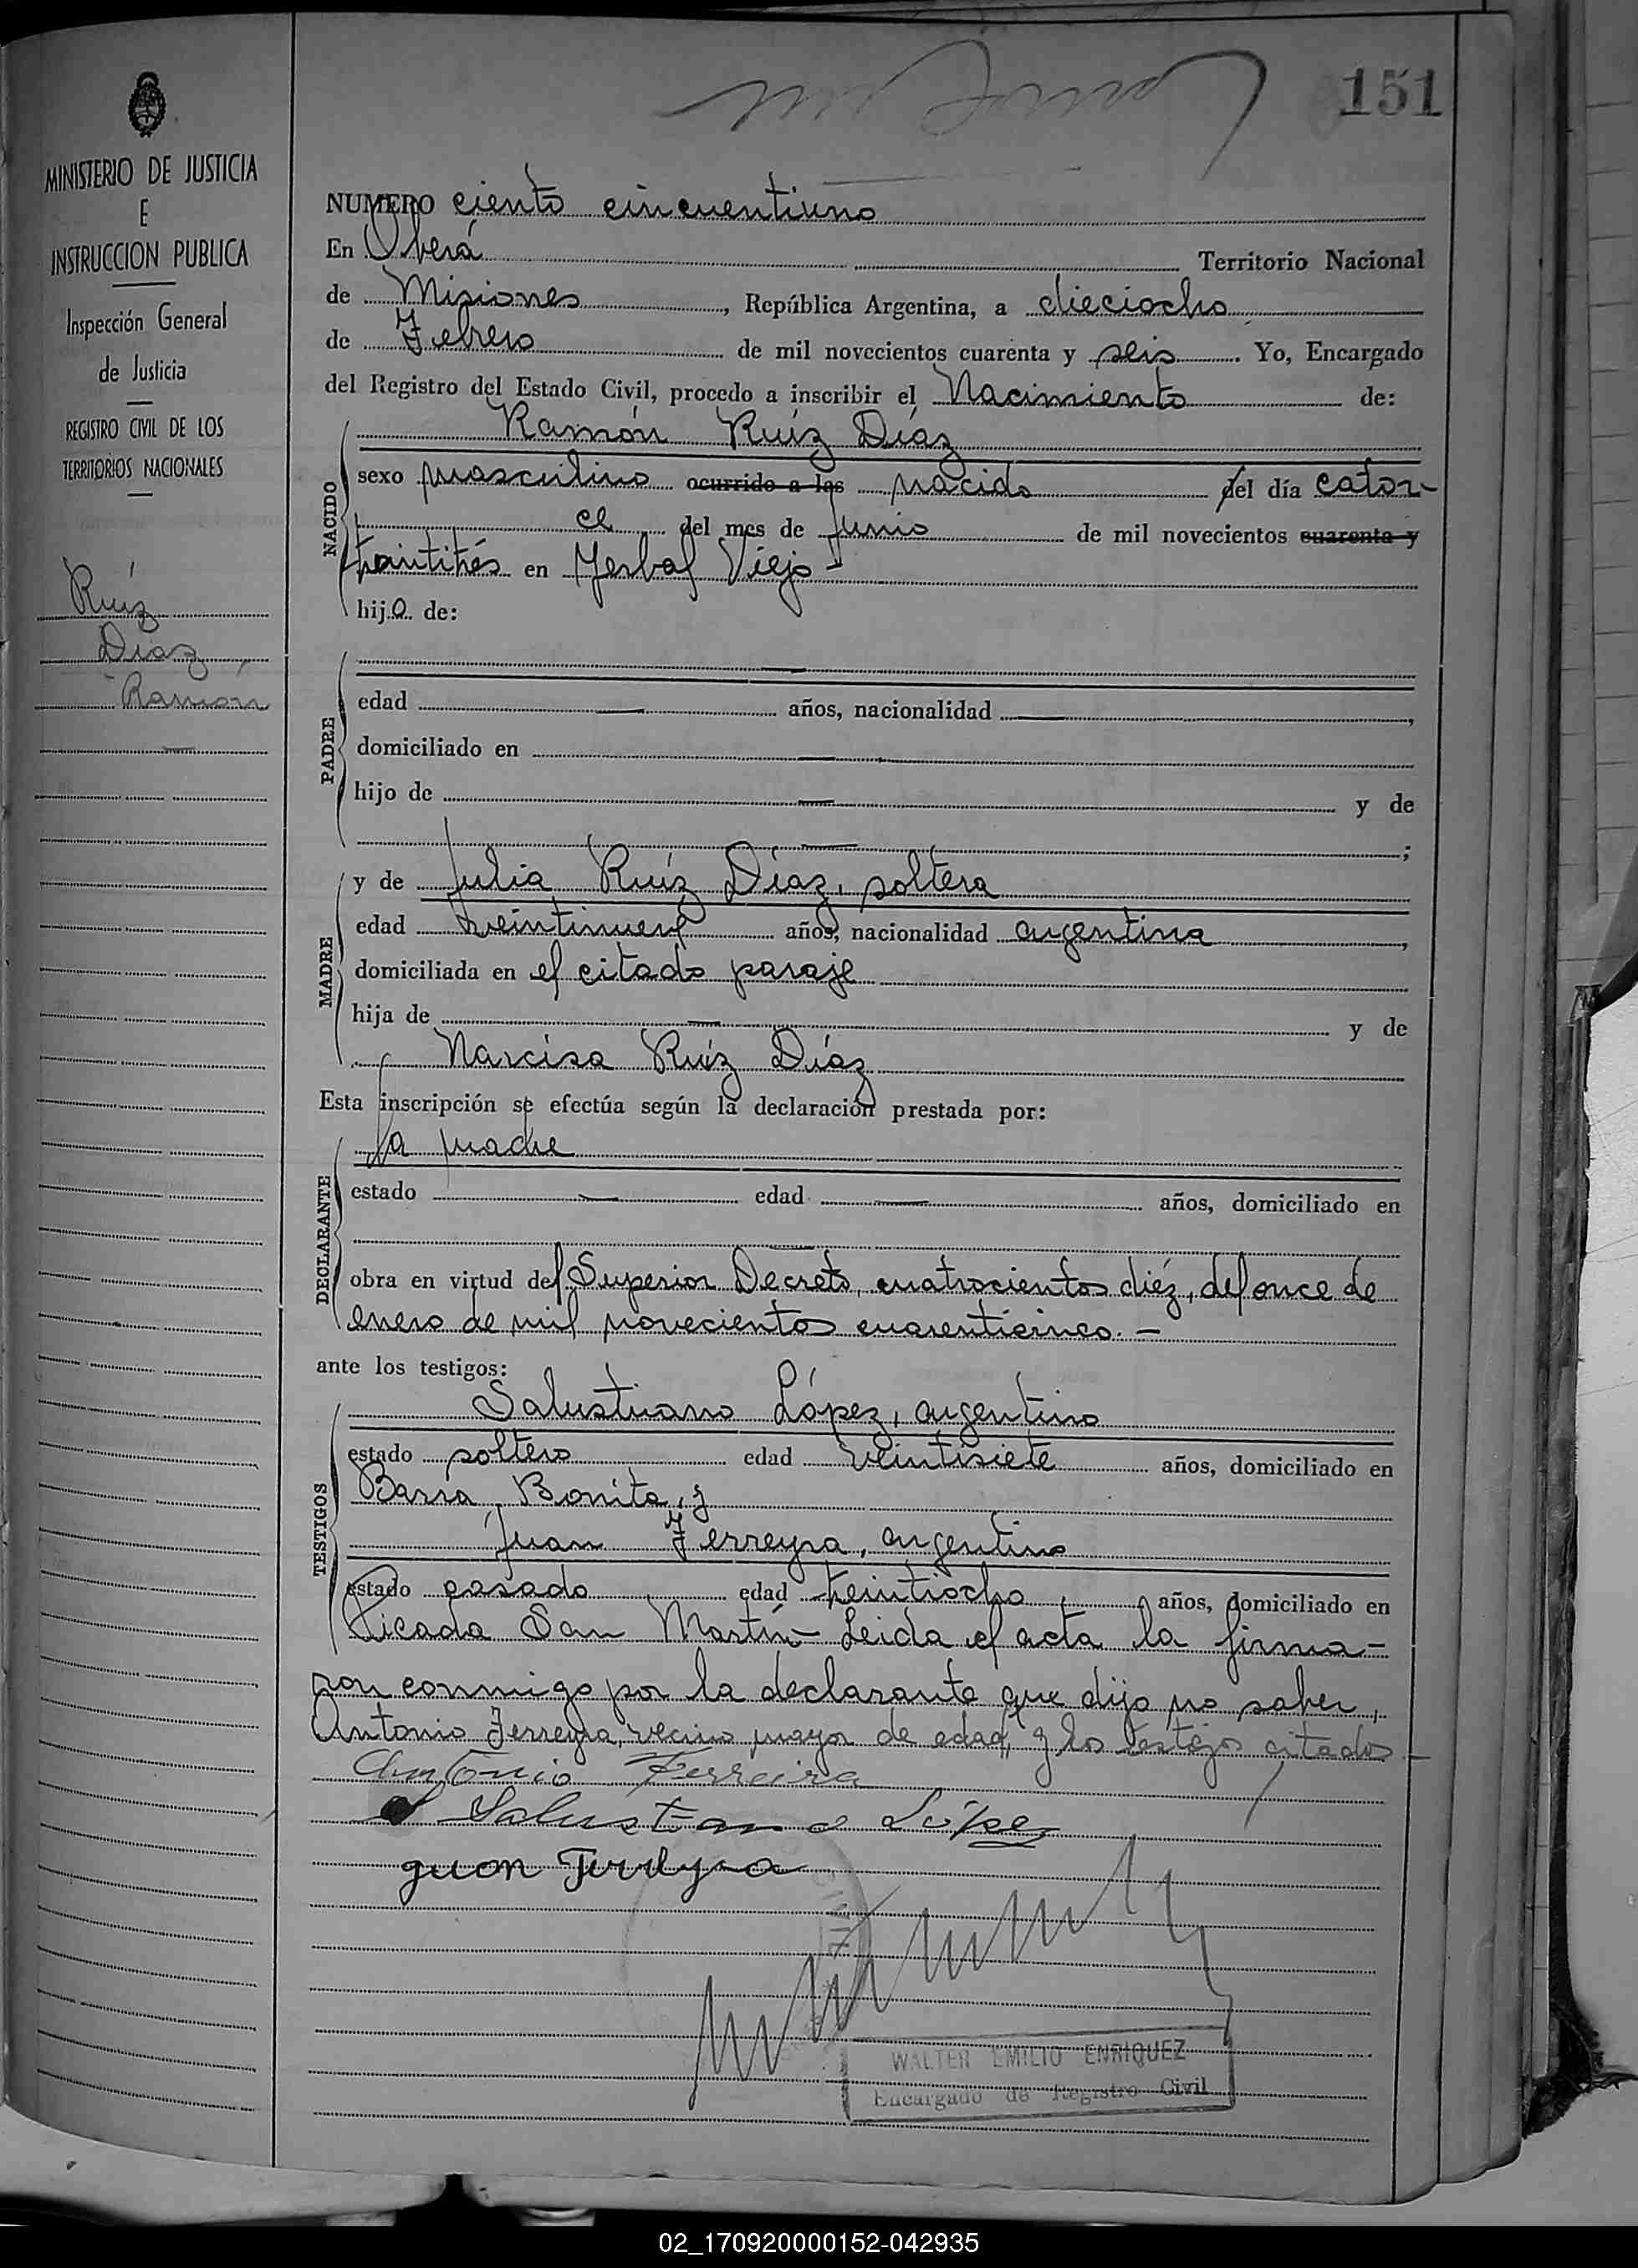 151
MINISTERIO DE JUSTICIA
E
INSTRUCCION PUBLICA
Inspección General
de Justicia
REGISTRO CIVIL DE LOS
TERRITORIOS NACIONALES
Ruíz
Díaz
Ramón
NUMERO ciento cincuentiuno
En Oberá Territorio Nacional
de Misiones, República Argentina, a dieciocho
de Febrero de mil novecientos cuarenta y seis. Yo, Encargado
del Registro del Estado Civil, procedo a inscribir el Nacimiento de:
Ramón Ruíz Díaz
NACIDO
sexo masculino ocurrido a las nacido del día cator-
ce del mes de Junio de mil novecientos cuarenta y
treintitrés en Yerbal Viejo-
hijo de:
PADRE
edad — años, nacionalidad —,
domiciliado en —
hijo de — y de
— ;
MADRE
y de Julia Ruíz Díaz, soltera
edad veintinueve años, nacionalidad argentina,
domiciliada en el citado paraje
hija de — y de
Narcisa Ruíz Díaz
Esta inscripción se efectúa según la declaración prestada por:
DECLARANTE
la madre
estado — edad — años, domiciliado en
—
obra en virtud del Superior Decreto, cuatrocientos diéz, del once de
enero de mil novecientos cuarenticinco.-
ante los testigos:
TESTIGOS
Salustiano López, argentino
estado soltero edad veintisiete años, domiciliado en
Barra Bonita, y
Juan Ferreyra, argentino
estado casado edad treintiocho años, domiciliado en
Picada San Martín- Leida el acta la firma-
ron conmigo por la declarante que dijo no saber,
Antonio Ferreyra, vecino mayor de edad, y los testigos citados-
Antonio Ferreira
Salustiano López
guan Ferreyra
WALTER EMILIO ENRIQUEZ
Encargado de Registro Civil
02_170920000152-042935